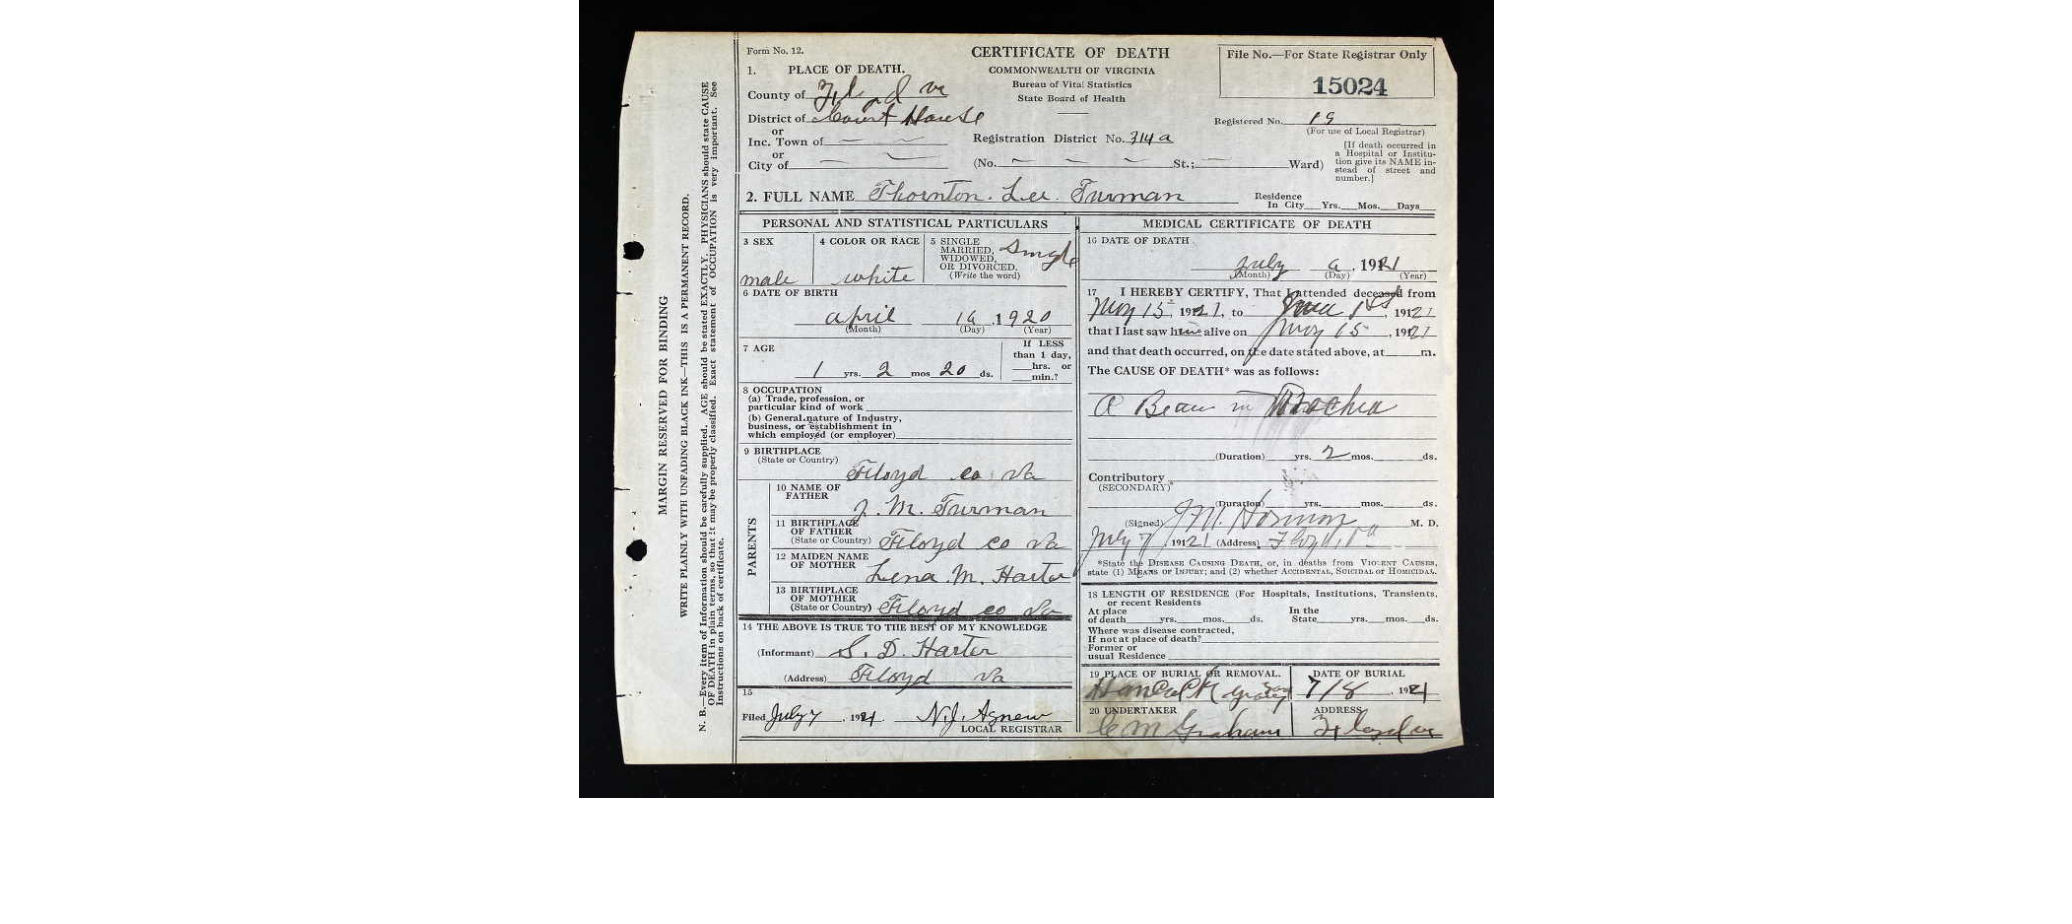 MARGIN RESERVED FOR BINDING
WRITE PLAINLY WITH UNFADING BLACK INK—THIS IS A PERMANENT RECORD.
N. B.—Every item of Information should be carefully supplied. AGE should be stated EXACTLY. PHYSICIANS should state CAUSE
OF DEATH in plain terms, so that it may be properly classified. Exact statement of OCCUPATION is very important. See
instructions on back of certificate.
Form No. 12.
CERTIFICATE OF DEATH
COMMONWEALTH OF VIRGINIA
Bureau of Vital Statistics
State Board of Health
File No.—For State Registrar Only
15024
1. PLACE OF DEATH.
County of Floyd va
District of Court House
or
Inc. Town of
or
City of
Registration District No. 714a
(No. St.; Ward)
Registered No. 19
(For use of Local Registrar)
[If death occurred in
a Hospital or Institu-
tion give its NAME in-
stead of street and
number.]
2. FULL NAME Thornton. Lee. Turman
Residence
In City Yrs. Mos. Days
PERSONAL AND STATISTICAL PARTICULARS
3 SEX
male
4 COLOR OR RACE
white
5 SINGLE
MARRIED,
WIDOWED,
OR DIVORCED.
(Write the word)
Single
6 DATE OF BIRTH
april 1920
(Month) (Day) (Year)
7 AGE
1 yrs. 2 mos 20 ds.
If LESS
than 1 day,
hrs. or
min.?
8 OCCUPATION
(a) Trade, profession, or
particular kind of work
(b) General nature of Industry,
business, or establishment in
which employed (or employer)
9 BIRTHPLACE
(State or Country)
Floyd co Va
PARENTS
10 NAME OF
FATHER
J. M. Turman
11 BIRTHPLACE
OF FATHER
(State or Country) Floyd co Va
12 MAIDEN NAME
OF MOTHER
Lena M. Harter
13 BIRTHPLACE
OF MOTHER
(State or Country) Floyd co Va
14 THE ABOVE IS TRUE TO THE BEST OF MY KNOWLEDGE
(Informant) S. D. Harter
(Address) Floyd Va
15
Filed July 7, 1921. N.J. Agnew
LOCAL REGISTRAR
MEDICAL CERTIFICATE OF DEATH
16 DATE OF DEATH
July , 1921
(Month) (Day) (Year)
17 I HEREBY CERTIFY, That I attended deceased from
May 15, 1921, to 1st, 1921
that I last saw him alive on May 15, 1921
and that death occurred, on the date stated above, at m.
The CAUSE OF DEATH* was as follows:
A Bean in Trachea
(Duration) yrs. 2 mos. ds.
Contributory
(SECONDARY)
(Duration) yrs. mos. ds.
(Signed) J M. Harman M. D.
July 7, 1921 (Address) Floyd, Va
*State the DISEASE CAUSING DEATH, or, in deaths from VIOLENT CAUSES,
state (1) MEANS OF INJURY; and (2) whether ACCIDENTAL, SUICIDAL or HOMICIDAL.
18 LENGTH OF RESIDENCE (For Hospitals, Institutions, Transients,
or recent Residents
At place
of death yrs. mos. ds.
In the
State yrs. mos. ds.
Where was disease contracted,
If not at place of death?
Former or
usual Residence
19 PLACE OF BURIAL OR REMOVAL.
DATE OF BURIAL
7/8, 1921
20 UNDERTAKER
C M Graham
ADDRESS
Floyd va